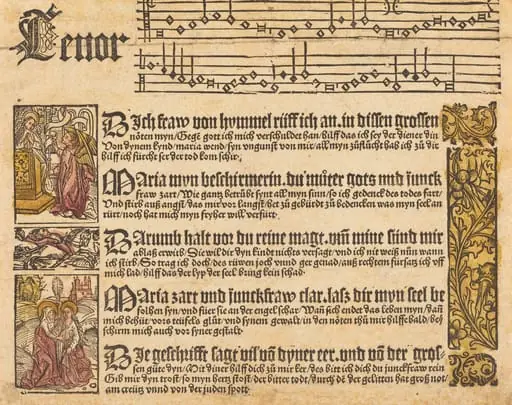 Tenor
Dich fraw von hymmel rüff ich an. in dissen grossen
nöten myn/Gegē gott ich mich verschuldet han/hilff das ich sey der diener din
Von dynem kynd/maria wend/syn vngunst von mir/all myn züflücht hab ich zü dir
hilff ich fürcht ser der tod kom schir.
Maria myn beschirmerin. du müter gots vnd junck
fraw zart/Wie gantz betrübt synt all myn sinn/so ich gedenck des todes fart/
Vnd stirb auß angst/das mir vor langst/het zü gebürdt zü bedencken was myn seel an
rürt/noch hat mich myn fryher will verfürt.
Darumb halt vor du reine magt. vm̄ mine sünd mir
ablaß erwirb/Sie wil dir dyn kindt nichts versagt/vnd ich nit weiß nün wann
ich stirb/So trag ich doch/des rüwen joch/vnnd ger genad/auß rechtem fürsatz ich off
mich lad/hilff das der lyp der seel bring kein schad.
Maria zart vnd junckfraw clar. lasz dir myn seel be
folhen syn/vnd füer sie an der engel schar/Wan̄ sich endet das leben myn/dan̄
mich behüt/vors teüfels glüt/vnd synem gewalt/in den nöten thü mir hilffe bald/be
schirm mich auch vor syner gestalt.
Die geschrifft sagt vil von dyner eer. vnd von der gros-
sen güte dyn/Mit diner hilff dich zü mir ker/des bitt ich dich du junckfraw rein
Gib mir dyn trost/so myn hertz stost/der bitter todt/durch dē der gelitten hat groß not/
am creütz vnnd von der juden spott